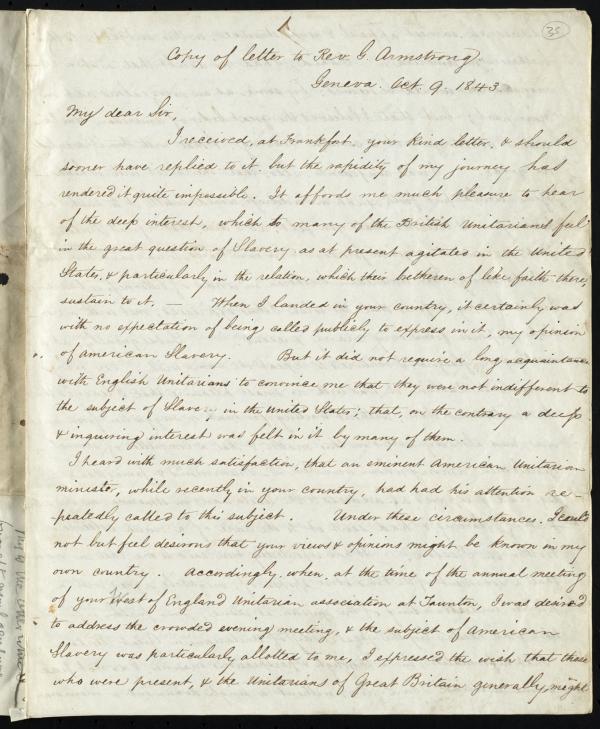 35
Copy of letter to Rev. G. Armstrong.
Geneva. Oct. 9. 1843.
My dear Sir,
I received, at Frankfort, your kind letter, & should
sooner have replied to it, but the rapidity of my journey has
rendered it quite impossible. It affords me much pleasure to hear
of the deep interest, which so many of the British Unitarians feel
in the great question of Slavery as at present agitated in the United
States, & particularly in the relation, which their bretheren of like faith there,
sustain to it. — When I landed in your country, it certainly was
with no expectation of being called publicly to express in it, my opinion
of american Slavery. But it did not require a long acquaintance
with English Unitarians to convince me that they were not indifferent to
the subject of Slavery in the United States; that, on the contrary a deep
& inquiring interest was felt in it by many of them.
I heard with much satisfaction, that an eminent American Unitarian
minister, while recently in your country, had had his attention re-
peatedly called to this subject. Under these circumstances, I could
not but feel desirous that your views & opinions might be known in my
own country. Accordingly, when, at the time of the annual meeting
of your West of England Unitarian association at Taunton, I was desired
to address the crowded evening meeting, & the subject of American
Slavery was particularly allotted to me, I expressed the wish that those
who were present, & the Unitarians of Great Britain generally, might